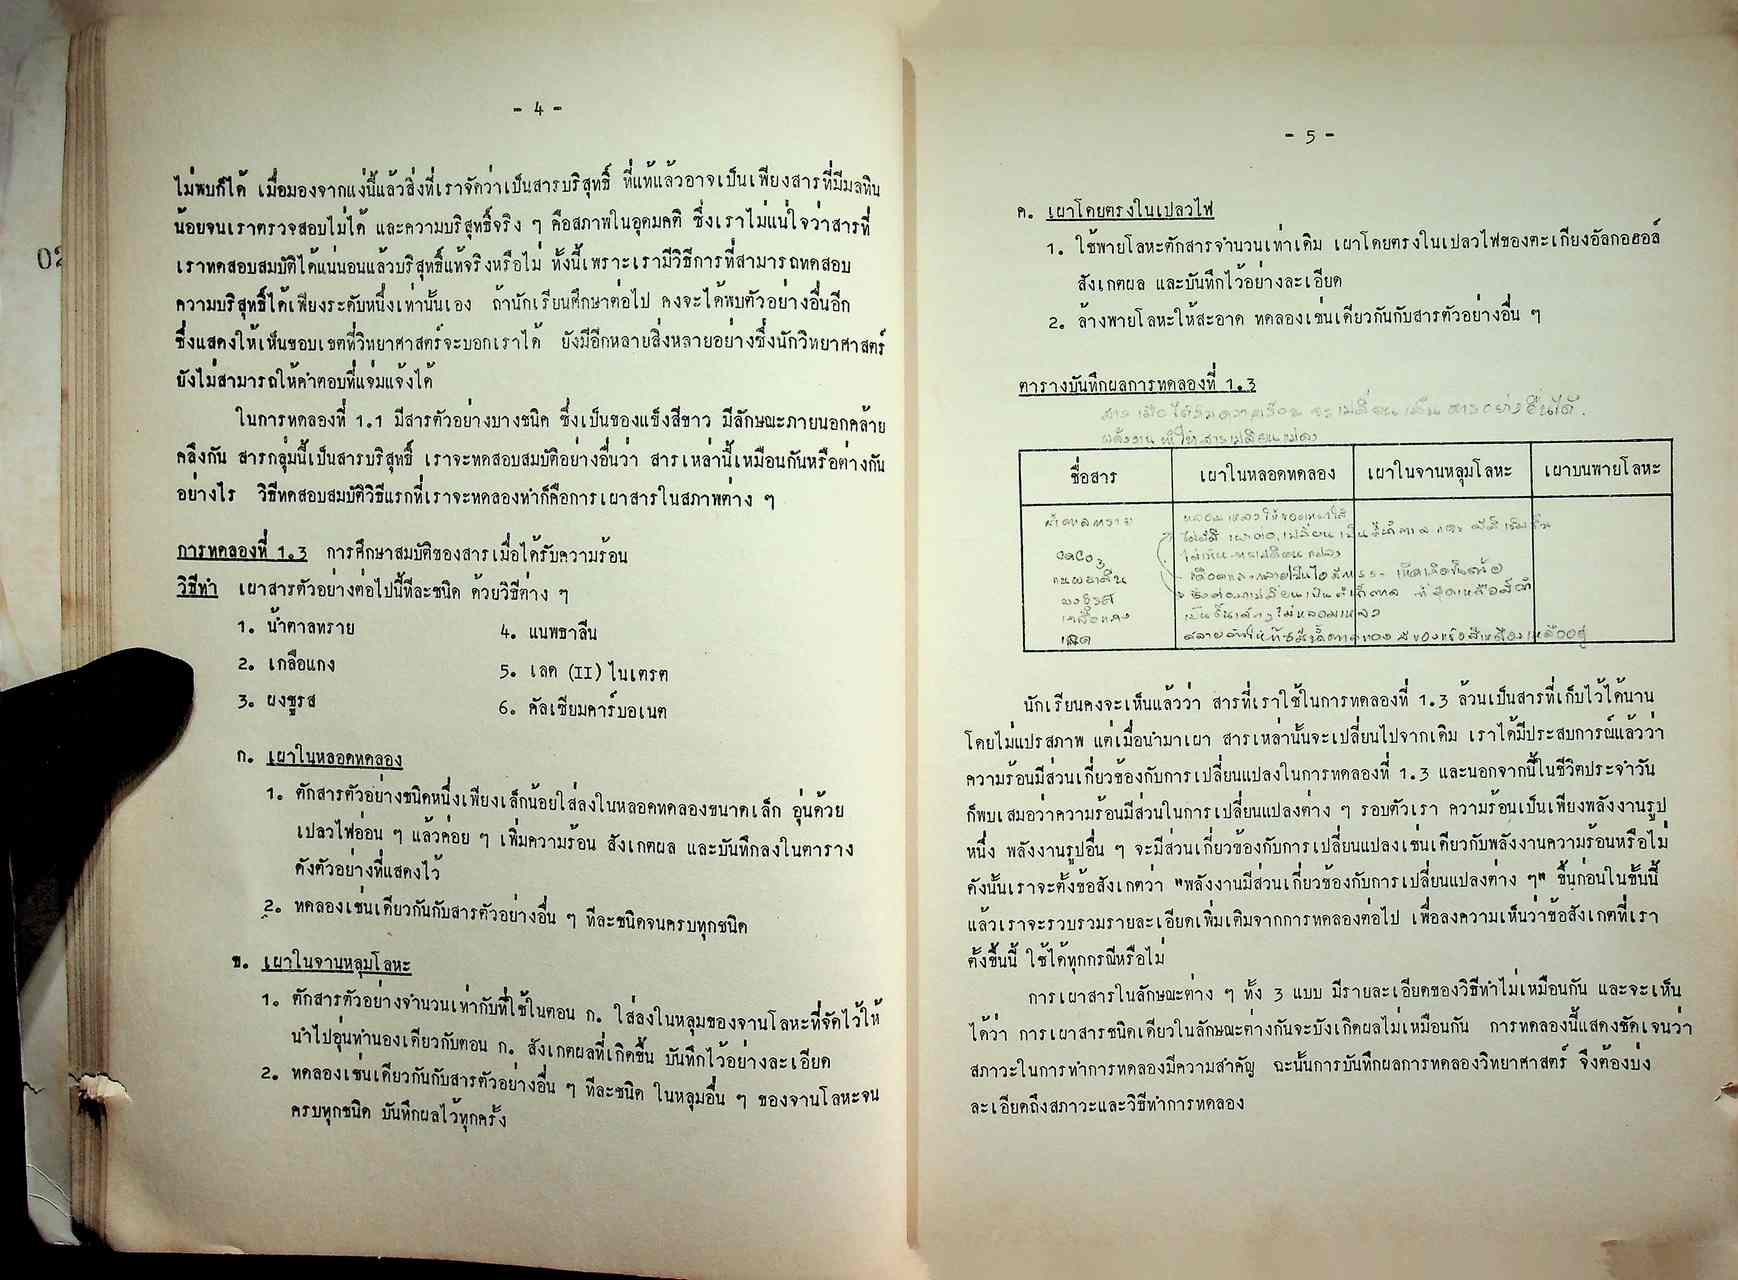 - 4 -
ไม่พบก็ได้ เมื่อมองจากแง่นี้แล้วสิ่งที่เราจัดว่าเป็นสารบริสุทธิ์ ที่แท้แล้วอาจเป็นเพียงสารที่มีมลทิน
น้อยจนเราตรวจสอบไม่ได้ และความบริสุทธิ์จริง ๆ คือสภาพในอุดมคติ ซึ่งเราไม่แน่ใจว่าสารที่
เราทดสอบสมบัติได้แน่นอนแล้วบริสุทธิ์แท้จริงหรือไม่ ทั้งนี้เพราะเรามีวิธีการที่สามารถทดสอบ
ความบริสุทธิ์ได้เพียงระดับหนึ่งเท่านั้นเอง ถ้านักเรียนศึกษาต่อไป คงจะได้พบตัวอย่างอื่นอีก
ซึ่งแสดงให้เห็นขอบเขตที่วิทยาศาสตร์จะบอกเราได้ ยังมีอีกหลายสิ่งหลายอย่างซึ่งนักวิทยาศาสตร์
ยังไม่สามารถให้คำตอบที่แจ่มแจ้งได้
ในการทดลองที่ 1.1 มีสารตัวอย่างบางชนิด ซึ่งเป็นของแข็งสีขาว มีลักษณะภายนอกคล้าย
คลึงกัน สารกลุ่มนี้เป็นสารบริสุทธิ์ เราจะทดสอบสมบัติอย่างอื่นว่า สารเหล่านี้เหมือนกันหรือต่างกัน
อย่างไร วิธีทดสอบสมบัติวิธีแรกที่เราจะทดลองทำก็คือการเผาสารในสภาพต่าง ๆ
การทดลองที่ 1.3 การศึกษาสมบัติของสารเมื่อได้รับความร้อน
วิธีทำ เผาสารตัวอย่างต่อไปนี้ทีละชนิด ด้วยวิธีต่าง ๆ
1. น้ำตาลทราย 4. แนพธาลีน
2. เกลือแกง 5. เลด (II) ไนเตรต
3. ผงชูรส 6. คัลเซียมคาร์บอเนต
ก. เผาในหลอดทดลอง
1. ตักสารตัวอย่างชนิดหนึ่งเพียงเล็กน้อยใส่ลงในหลอดทดลองขนาดเล็ก อุ่นด้วย
เปลวไฟอ่อน ๆ แล้วค่อย ๆ เพิ่มความร้อน สังเกตผล และบันทึกลงในตาราง
ดังตัวอย่างที่แสดงไว้
2. ทดลองเช่นเดียวกันกับสารตัวอย่างอื่น ๆ ทีละชนิดจนครบทุกชนิด
ข. เผาในจานหลุมโลหะ
1. ตักสารตัวอย่างจำนวนเท่ากับที่ใช้ในตอน ก. ใส่ลงในหลุมของจานโลหะที่จัดไว้ให้
นำไปอุ่นทำนองเดียวกับตอน ก. สังเกตผลที่เกิดขึ้น บันทึกไว้อย่างละเอียด
2. ทดลองเช่นเดียวกันกับสารตัวอย่างอื่น ๆ ทีละชนิด ในหลุมอื่น ๆ ของจานโลหะจน
ครบทุกชนิด บันทึกผลไว้ทุกครั้ง
- 5 -
ค. เผาโดยตรงในเปลวไฟ
1. ใช้พายโลหะตักสารจำนวนเท่าเดิม เผาโดยตรงในเปลวไฟของตะเกียงอัลกอฮอล์
สังเกตผล และบันทึกไว้อย่างละเอียด
2. ล้างพายโลหะให้สะอาด ทดลองเช่นเดียวกันกับสารตัวอย่างอื่น ๆ
ตารางบันทึกผลการทดลองที่ 1.3
สารเมื่อได้รับความร้อน จะเปลี่ยนเป็นสารอย่างอื่นได้.
พลังงานทำให้สารเปลี่ยนแปลง
ชื่อสาร เผาในหลอดทดลอง เผาในจานหลุมโลหะ เผาบนพายโลหะ
น้ำตาลทราย
CaCO3
แนพธาลีน
ผงชูรส
เกลือแกง
เลด
นักเรียนคงจะเห็นแล้วว่า สารที่เราใช้ในการทดลองที่ 1.3 ล้วนเป็นสารที่เก็บไว้ได้นาน
โดยไม่แปรสภาพ แต่เมื่อนำมาเผา สารเหล่านั้นจะเปลี่ยนไปจากเดิม เราได้มีประสบการณ์แล้วว่า
ความร้อนมีส่วนเกี่ยวข้องกับการเปลี่ยนแปลงในการทดลองที่ 1.3 และนอกจากนี้ในชีวิตประจำวัน
ก็พบเสมอว่าความร้อนมีส่วนในการเปลี่ยนแปลงต่าง ๆ รอบตัวเรา ความร้อนเป็นเพียงพลังงานรูป
หนึ่ง พลังงานรูปอื่น ๆ จะมีส่วนเกี่ยวข้องกับการเปลี่ยนแปลงเช่นเดียวกับพลังงานความร้อนหรือไม่
ดังนั้นเราจะตั้งข้อสังเกตว่า "พลังงานมีส่วนเกี่ยวข้องกับการเปลี่ยนแปลงต่าง ๆ" ขึ้นก่อนในขั้นนี้
แล้วเราจะรวบรวมรายละเอียดเพิ่มเติมจากการทดลองต่อไป เพื่อลงความเห็นว่าข้อสังเกตที่เรา
ตั้งขึ้นนี้ ใช้ได้ทุกกรณีหรือไม่
การเผาสารในลักษณะต่าง ๆ ทั้ง 3 แบบ มีรายละเอียดของวิธีทำไม่เหมือนกัน และจะเห็น
ได้ว่า การเผาสารชนิดเดียวในลักษณะต่างกันจะบังเกิดผลไม่เหมือนกัน การทดลองนี้แสดงชัดเจนว่า
สภาวะในการทำการทดลองมีความสำคัญ ฉะนั้นการบันทึกผลการทดลองวิทยาศาสตร์ จึงต้องบ่ง
ละเอียดถึงสภาวะและวิธีทำการทดลอง